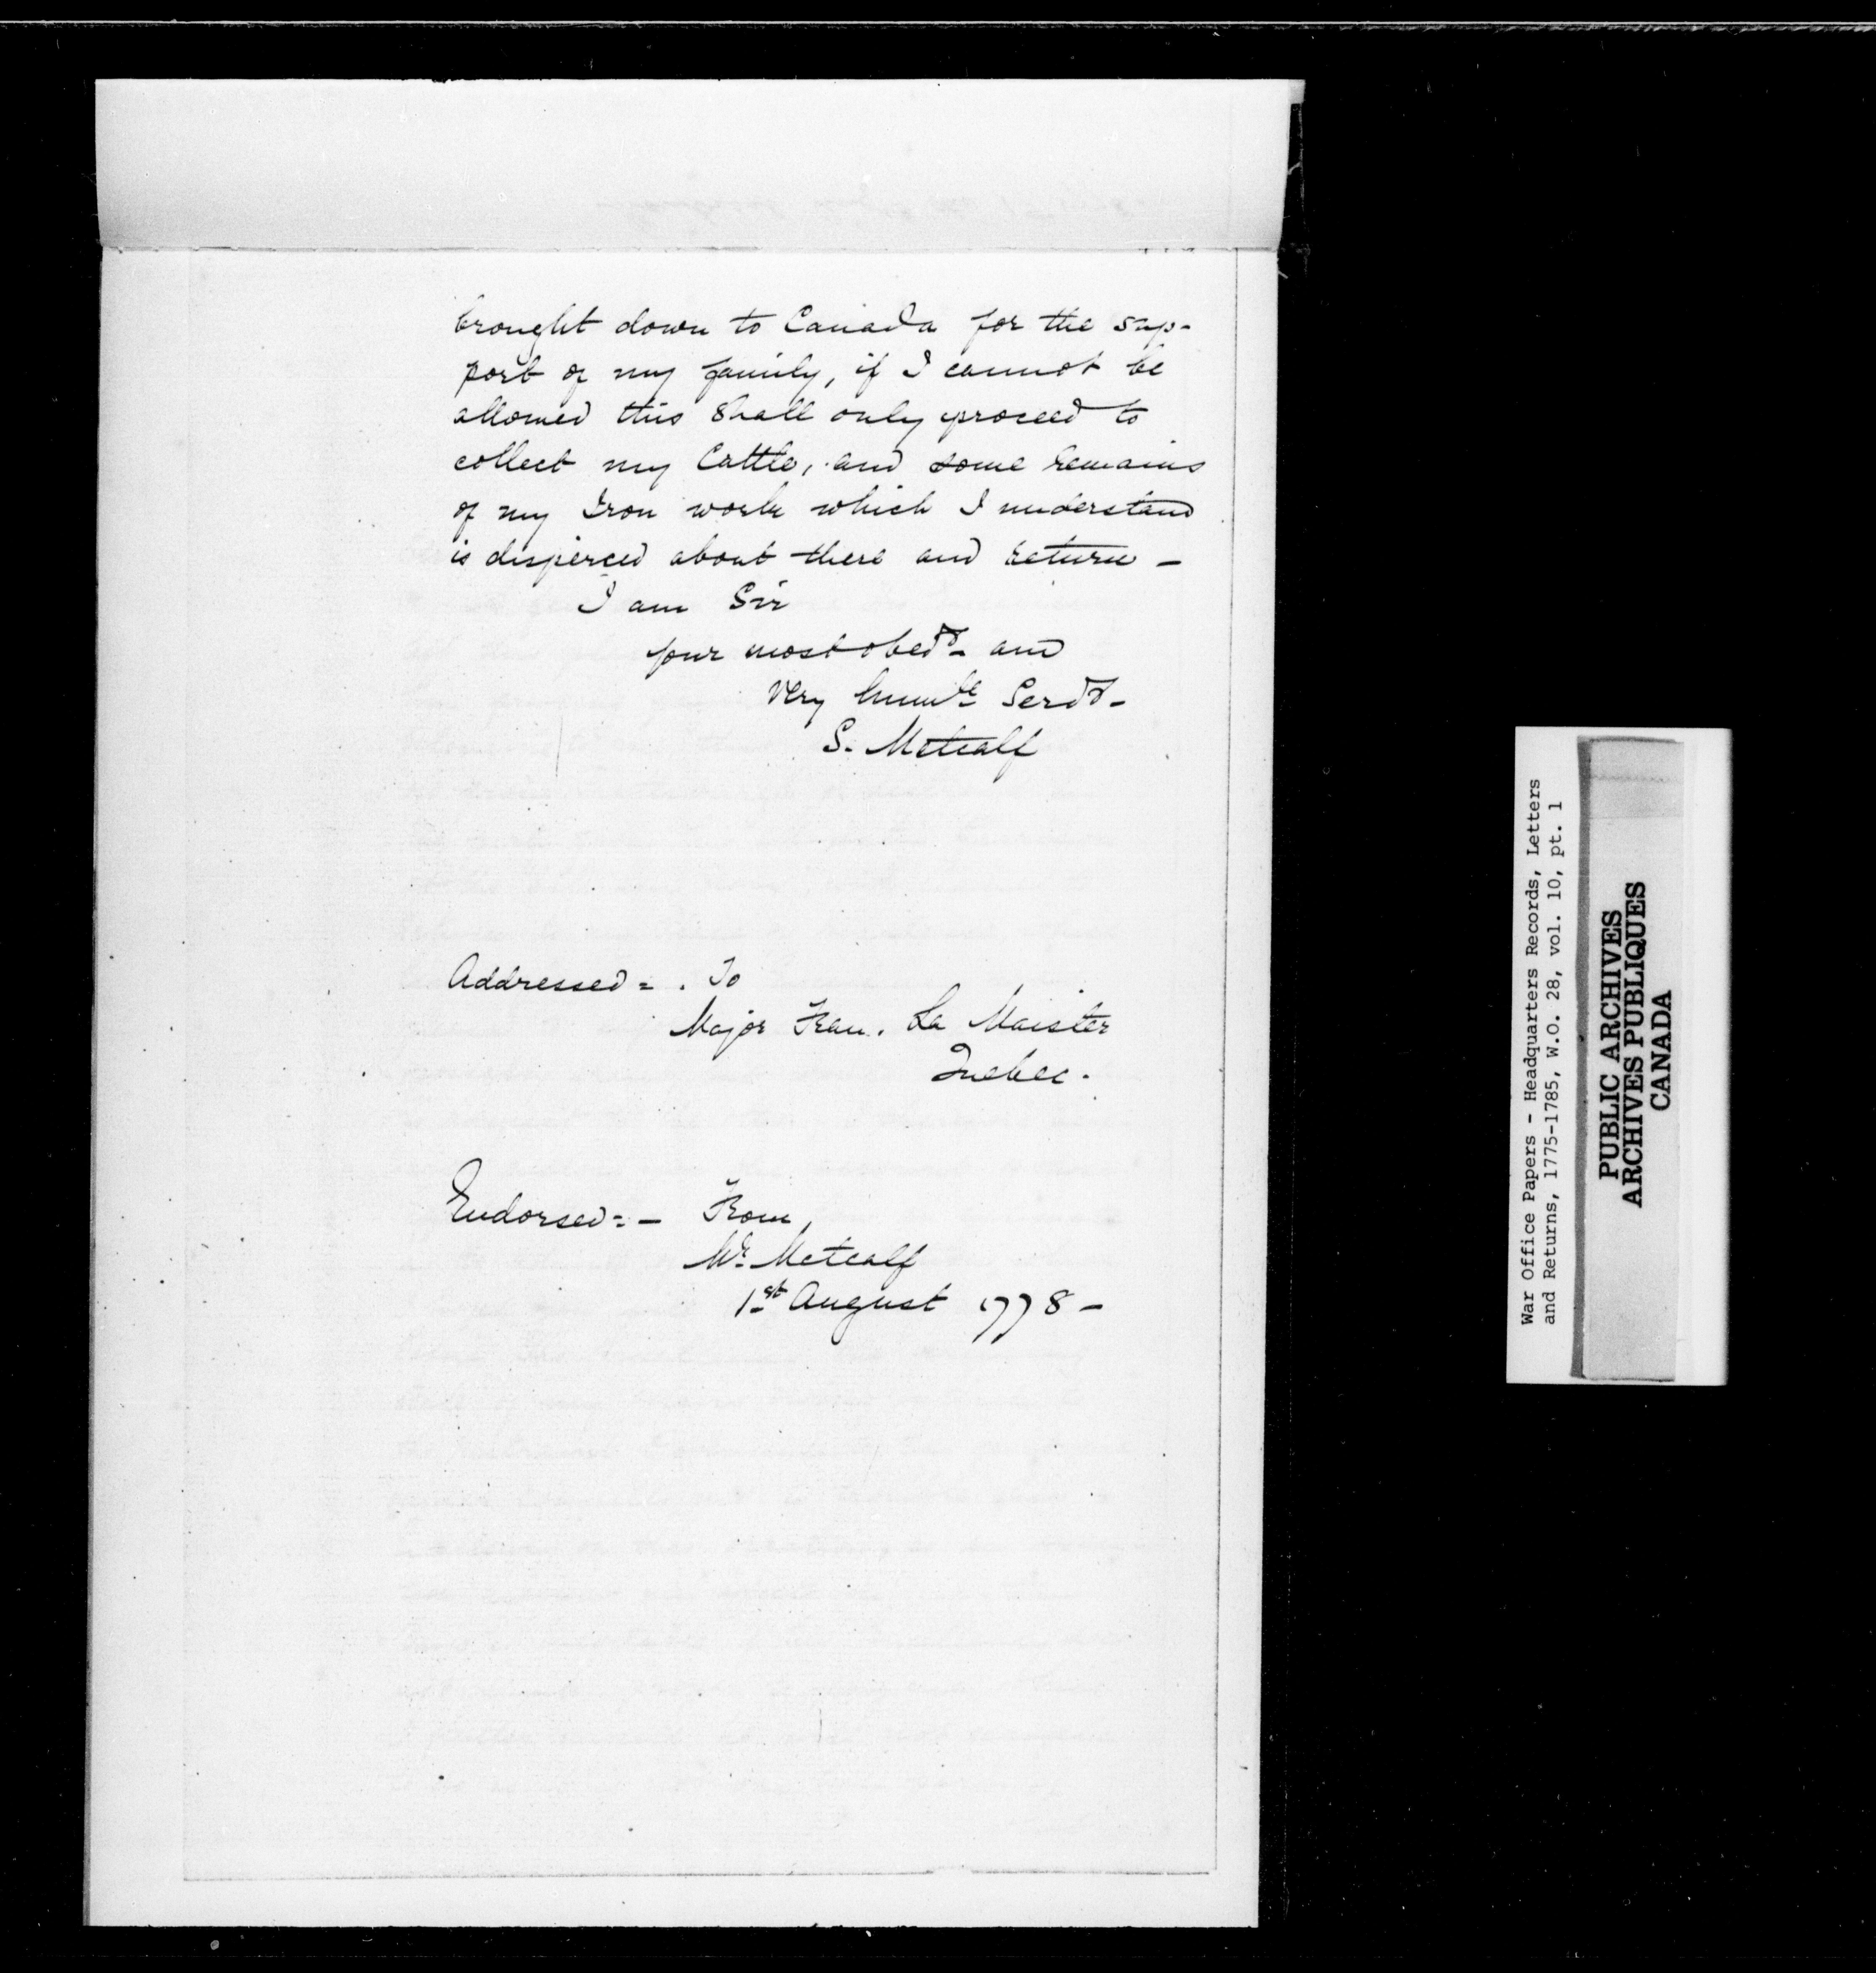 brought down to Canada for the sup-
port of my family, if I cannot be
allowed this shall only proceed to
collect my Cattle, and some remains
of my Iron work which I understand
is disperced about there and return –
I am Sir
your most obedt. and
very humble Servt.
S. Metcalf
Addressed = . To
Major Fran. La Maister
Quebec.
Endorsed = – From,
Mr. Metcalf
1st August 1778 –
War Office Papers - Headquarters Records, Letters
and Returns, 1775-1785, W.O. 28, vol. 10, pt. 1
PUBLIC ARCHIVES
ARCHIVES PUBLIQUES
CANADA